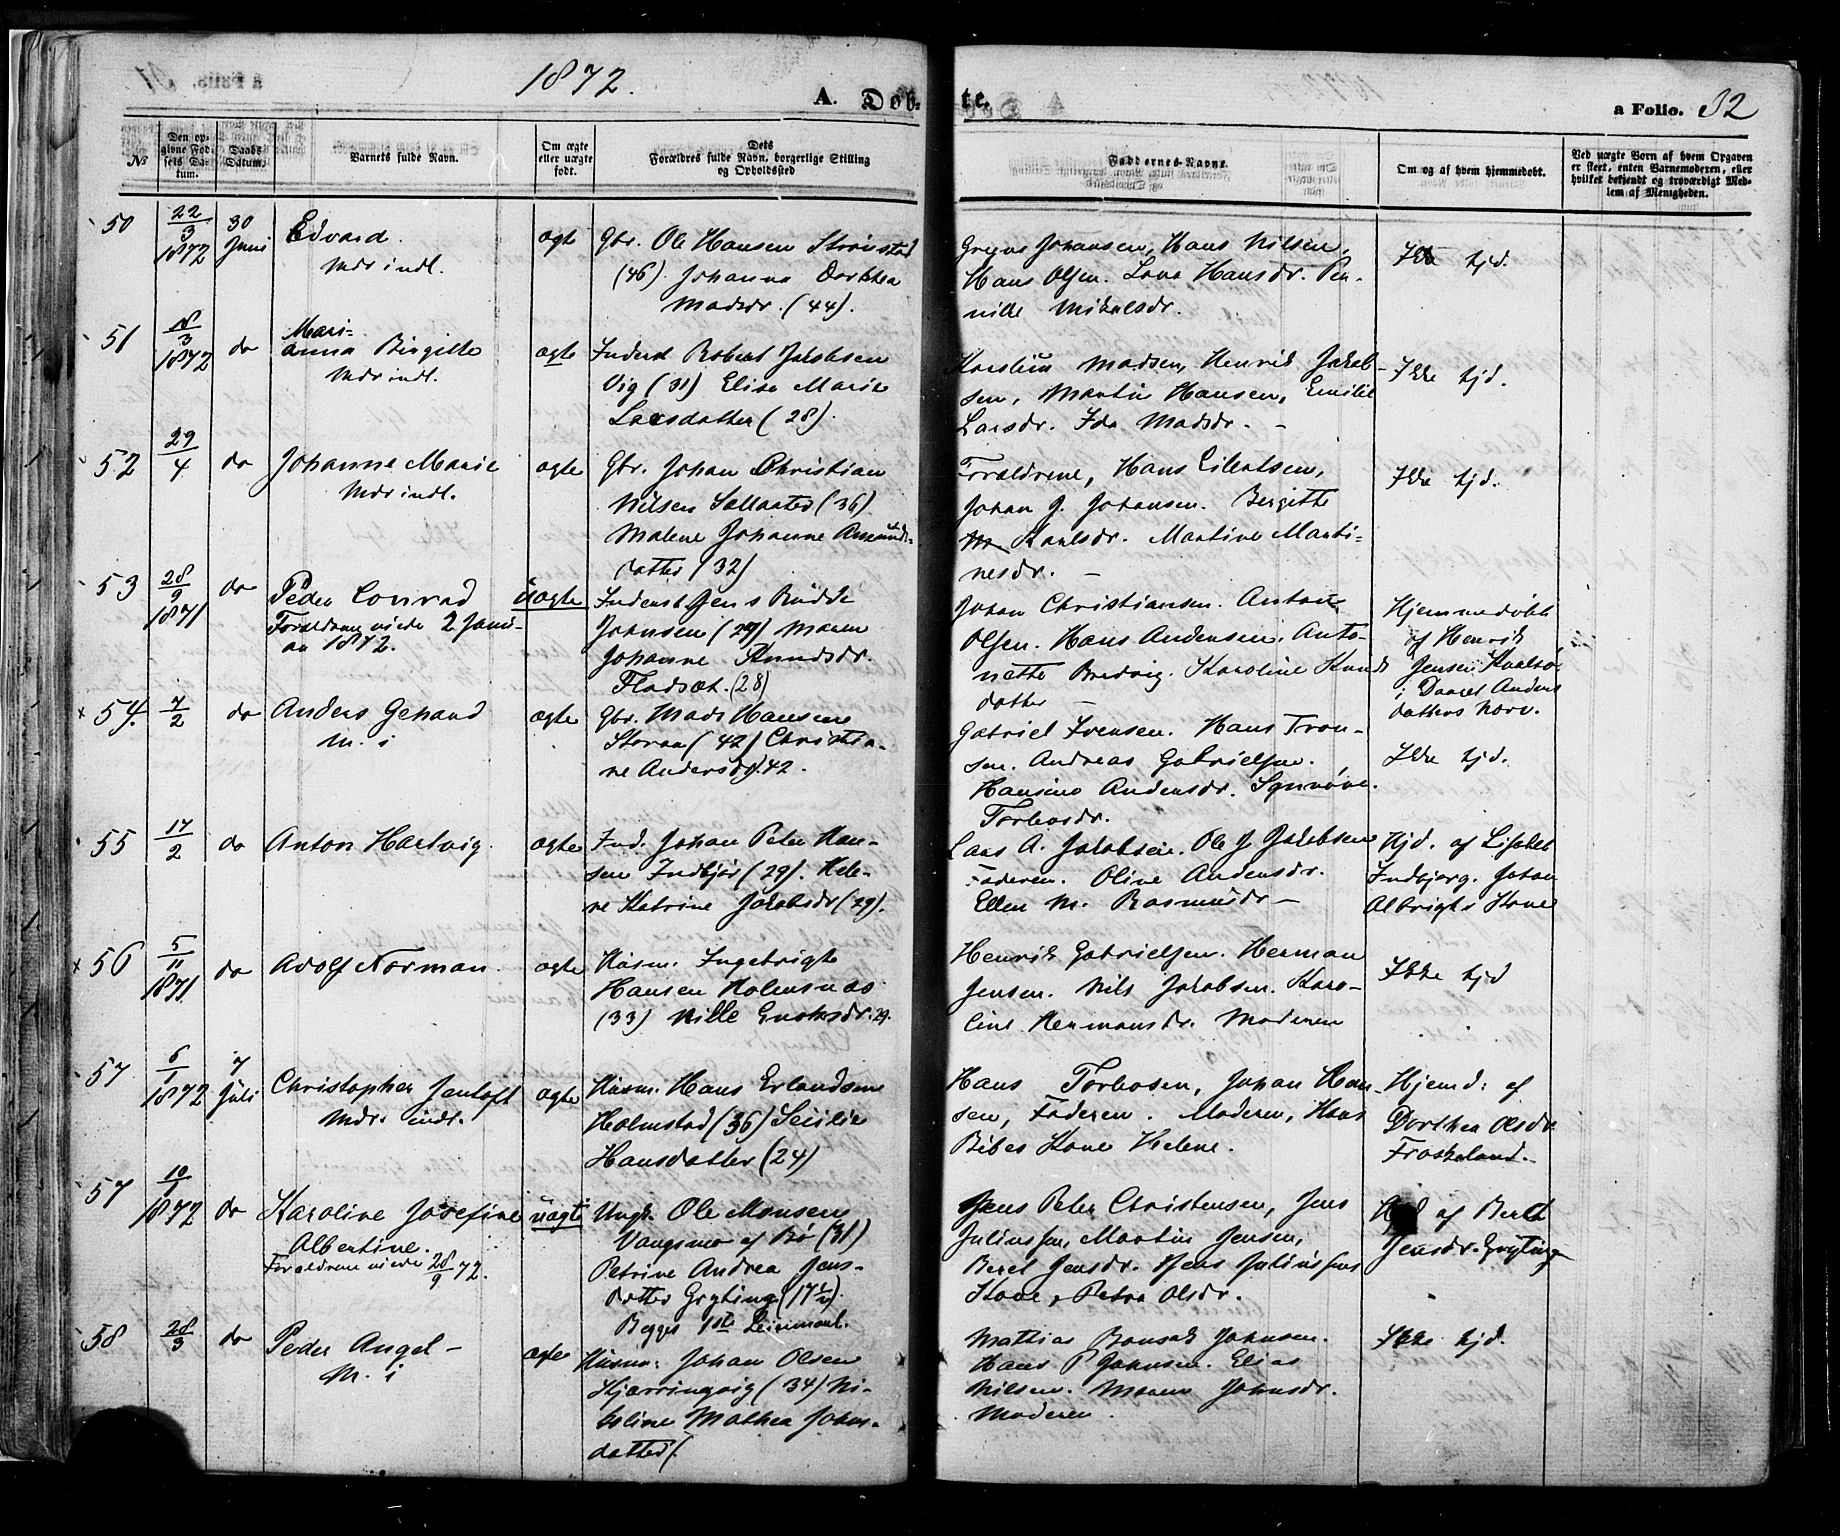 1872.
A. Døb-
te.
a Folio. 32
No
Den op-
givne Fød-
sels Da-
tum.
Daabs
Datum.
Barnets fulde Navn.
Om ægte
eller uægte
født.
Dets
Forældres fulde Navn, borgerlige Stilling
og Opholdssted
Faddernes Navne.
Om og af hvem hjemmedøbt.
Ved uægte Børn af hvem Opgaven
er skeet, enten Barnemoderen, eller
hvilket bekjendt og troværdigt Med-
lem af Menigheden.
50
22/3 1872
30 Juni
Edvard.
Mdr indl.
ægte
Gbr. Ole Hansen Strønstad
(46). Johanna Dorthea
Madsdr. (44).
Johansen, Hans Nilsen,
Hans Olsen. Lova Hansdr. Per-
nille Mikalsdr.
Ikke hjd.
51
18/3 1872
do
Mari-
anna Birgitte
Mdr indl.
ægte
Inderst Robert Jakobsen
Vig (31) Elisa Marie
Larsdatter (28).
Madsen, Henrik Jakob-
sen, Martin Hansen, Emilie
Larsdr. Ida Madsdr. -
Ikke hjd.
52
29/4
do
Johanne Marie
Mdr indl.
ægte
Gbr. Johan Christian
Nilsen (36)
Malene Johanne Amunds-
datter (32)
Forældrene, Hans Eilertsen,
Johan J. Johansen. Bergitte
Karlsdr. Martine Marti-
nesdr. -
Ikke hjd.
53
28/9 1871
do
Peder Conrad
Forældrene viede 2 Janu-
ar 1872.
uægte
Inderst Jens Budde
Johansen (29) Maren
Johanne Knudsdr.
Fladsæt. (28)
Johan Christiansen. Anton
Olsen. Hans Andersen. Anto-
nette Bredvig. Karoline Knuds
datter -
Hjemmedøbt
af Henrik
Jensen Kvalsø
i Daaret Anders
datters Nærv.
54.
7/2
do
Anders Gehard
M. i
ægte
Gbr. Mads Hansen
Storaa (42) Christia-
ne Andersdr. 42.
Gabriel Ivensen. Hans Tron-
sen. Andreas Gabrielsen.
Hansine Andersdr. Synnøve
Torbersdr.
Ikke hjd.
55
17/2
do
Anton Hartvig.
ægte
Ind. Johan Peter Han-
sen Indbjør (29). Hele-
ne Katrine Jakobsdr (29).
Lars A. Jakobsen. Ole J Jakobsen
Faderen. Olive Andersdr.
Ellen M. Rasmusdr -
Hjd. af Lisabet
Indbjørg. Johan
Albrigts Kone
56
5/11 1871
do
Adolf Norman.
ægte
Husm. Ingebrigt
Hansen Holmsnæs
(33) Nille Enoksdr. 29.
Henrik Gabrielsen. Herman
Jensen. Nils Jakobsen. Karo-
line Hermansdr. Moderen
Ikke hjd
57
6/1 1872
7 Juli
Christopher Jentoft
Mdr. indl.
ægte
Husm. Hans Erlandsen
Holmstad (36) Seselie
Hansdatter (24)
Hans Torbosen, Johan Han-
sen, Faderen. Moderen, Hans
Bibes Kone Helene.
Hjemd: af
Dorthea Olsdr
Froskeland.-
57
10/1 1872
do
Karoline Josefine
Albertine.
Forældrene viede 28/9 72.
uægte
Ungk. Ole Monsen
Vangsmo af Bø (31)
Petrine Andrea Jens-
datter Gryting (17½).
Begges 1ste Leiermaal.
Jens Peter Christensen, Jens
Juliussen, Martin Jensen,
Beret Jensdr. Jens Juliussens
Kone, Petra Olsdr.
af Beret
Jensdr. Gryting
58
28/3
do
Peder Angel -
M. i
ægte
Husm: Johan Olsen
Kjærringvig (34) Ni-
koline Mathea Johns-
datter (.
Mathias Bonsak Johnsen.
Hans P Johnsen. Elias
Nilsen. Maren Johnsdr.
Moderen.
Ikke hjd.